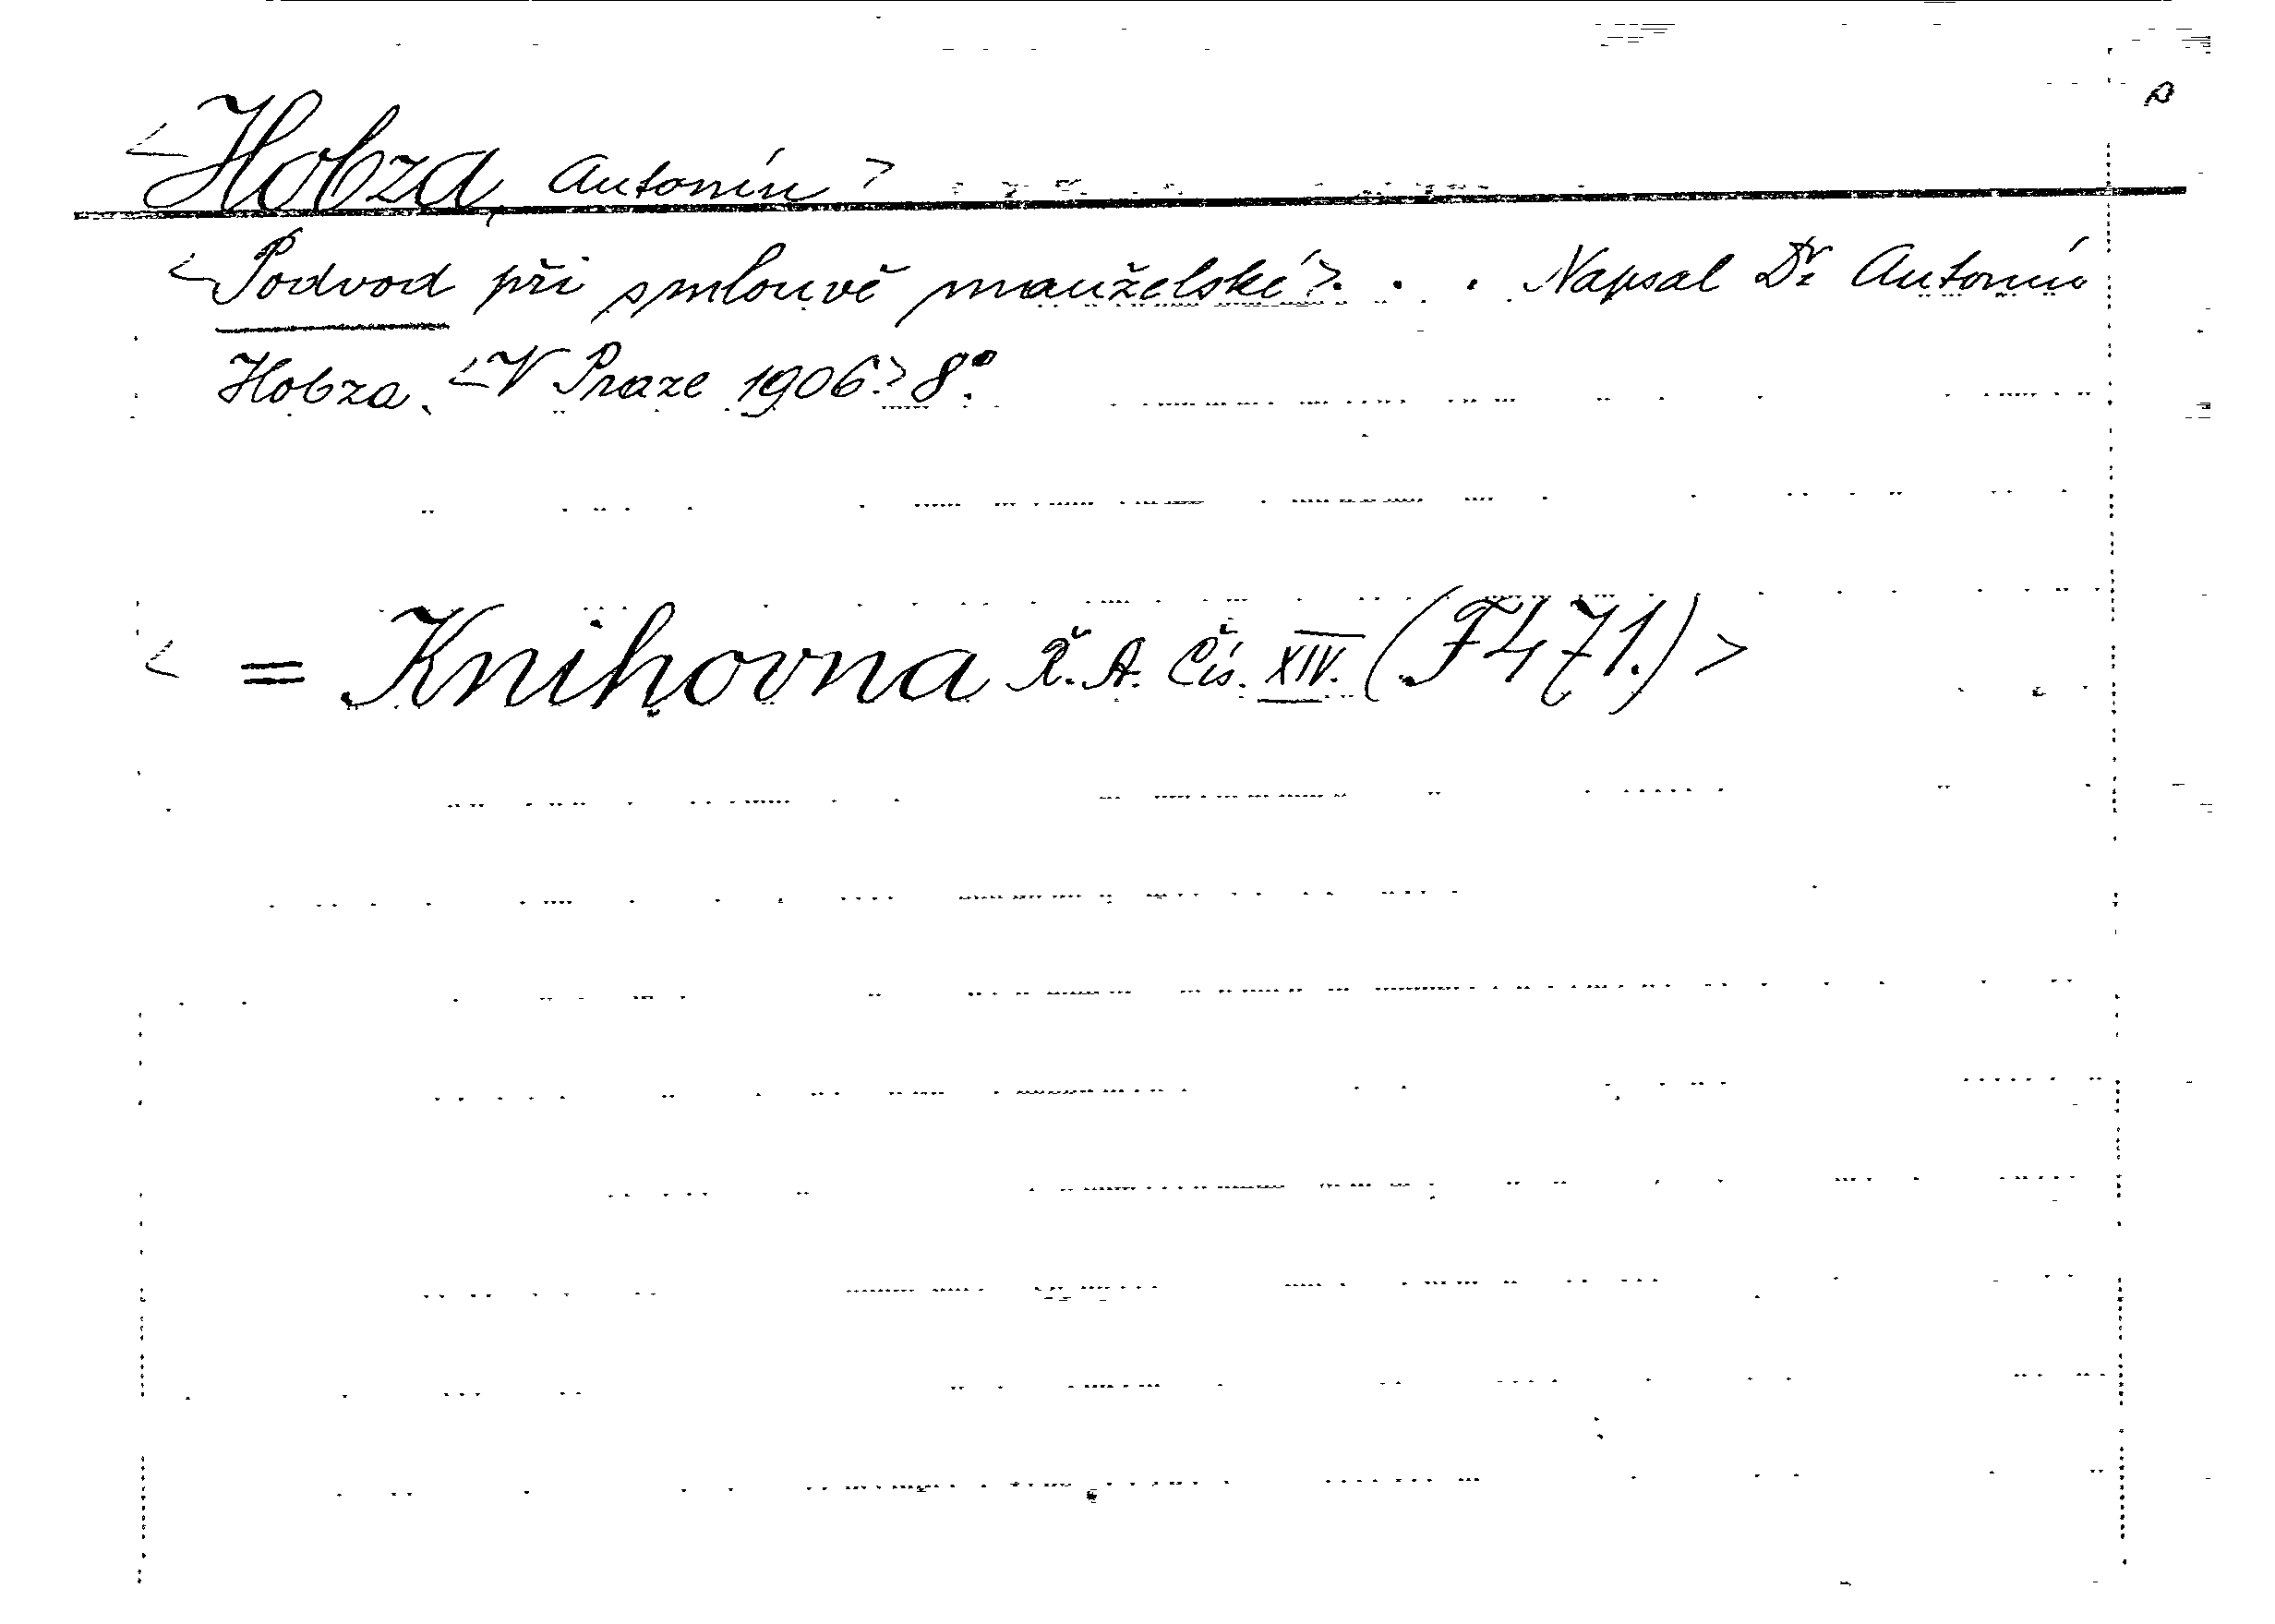 <Hobza, Antonín>
<Podvod při smlouvě manželské>. . . Napsal Dr. Antonín
Hobza. <V Praze 1906.> 8°.
< = Knihovna Ř. A. Čís. XIV. (F471.) >